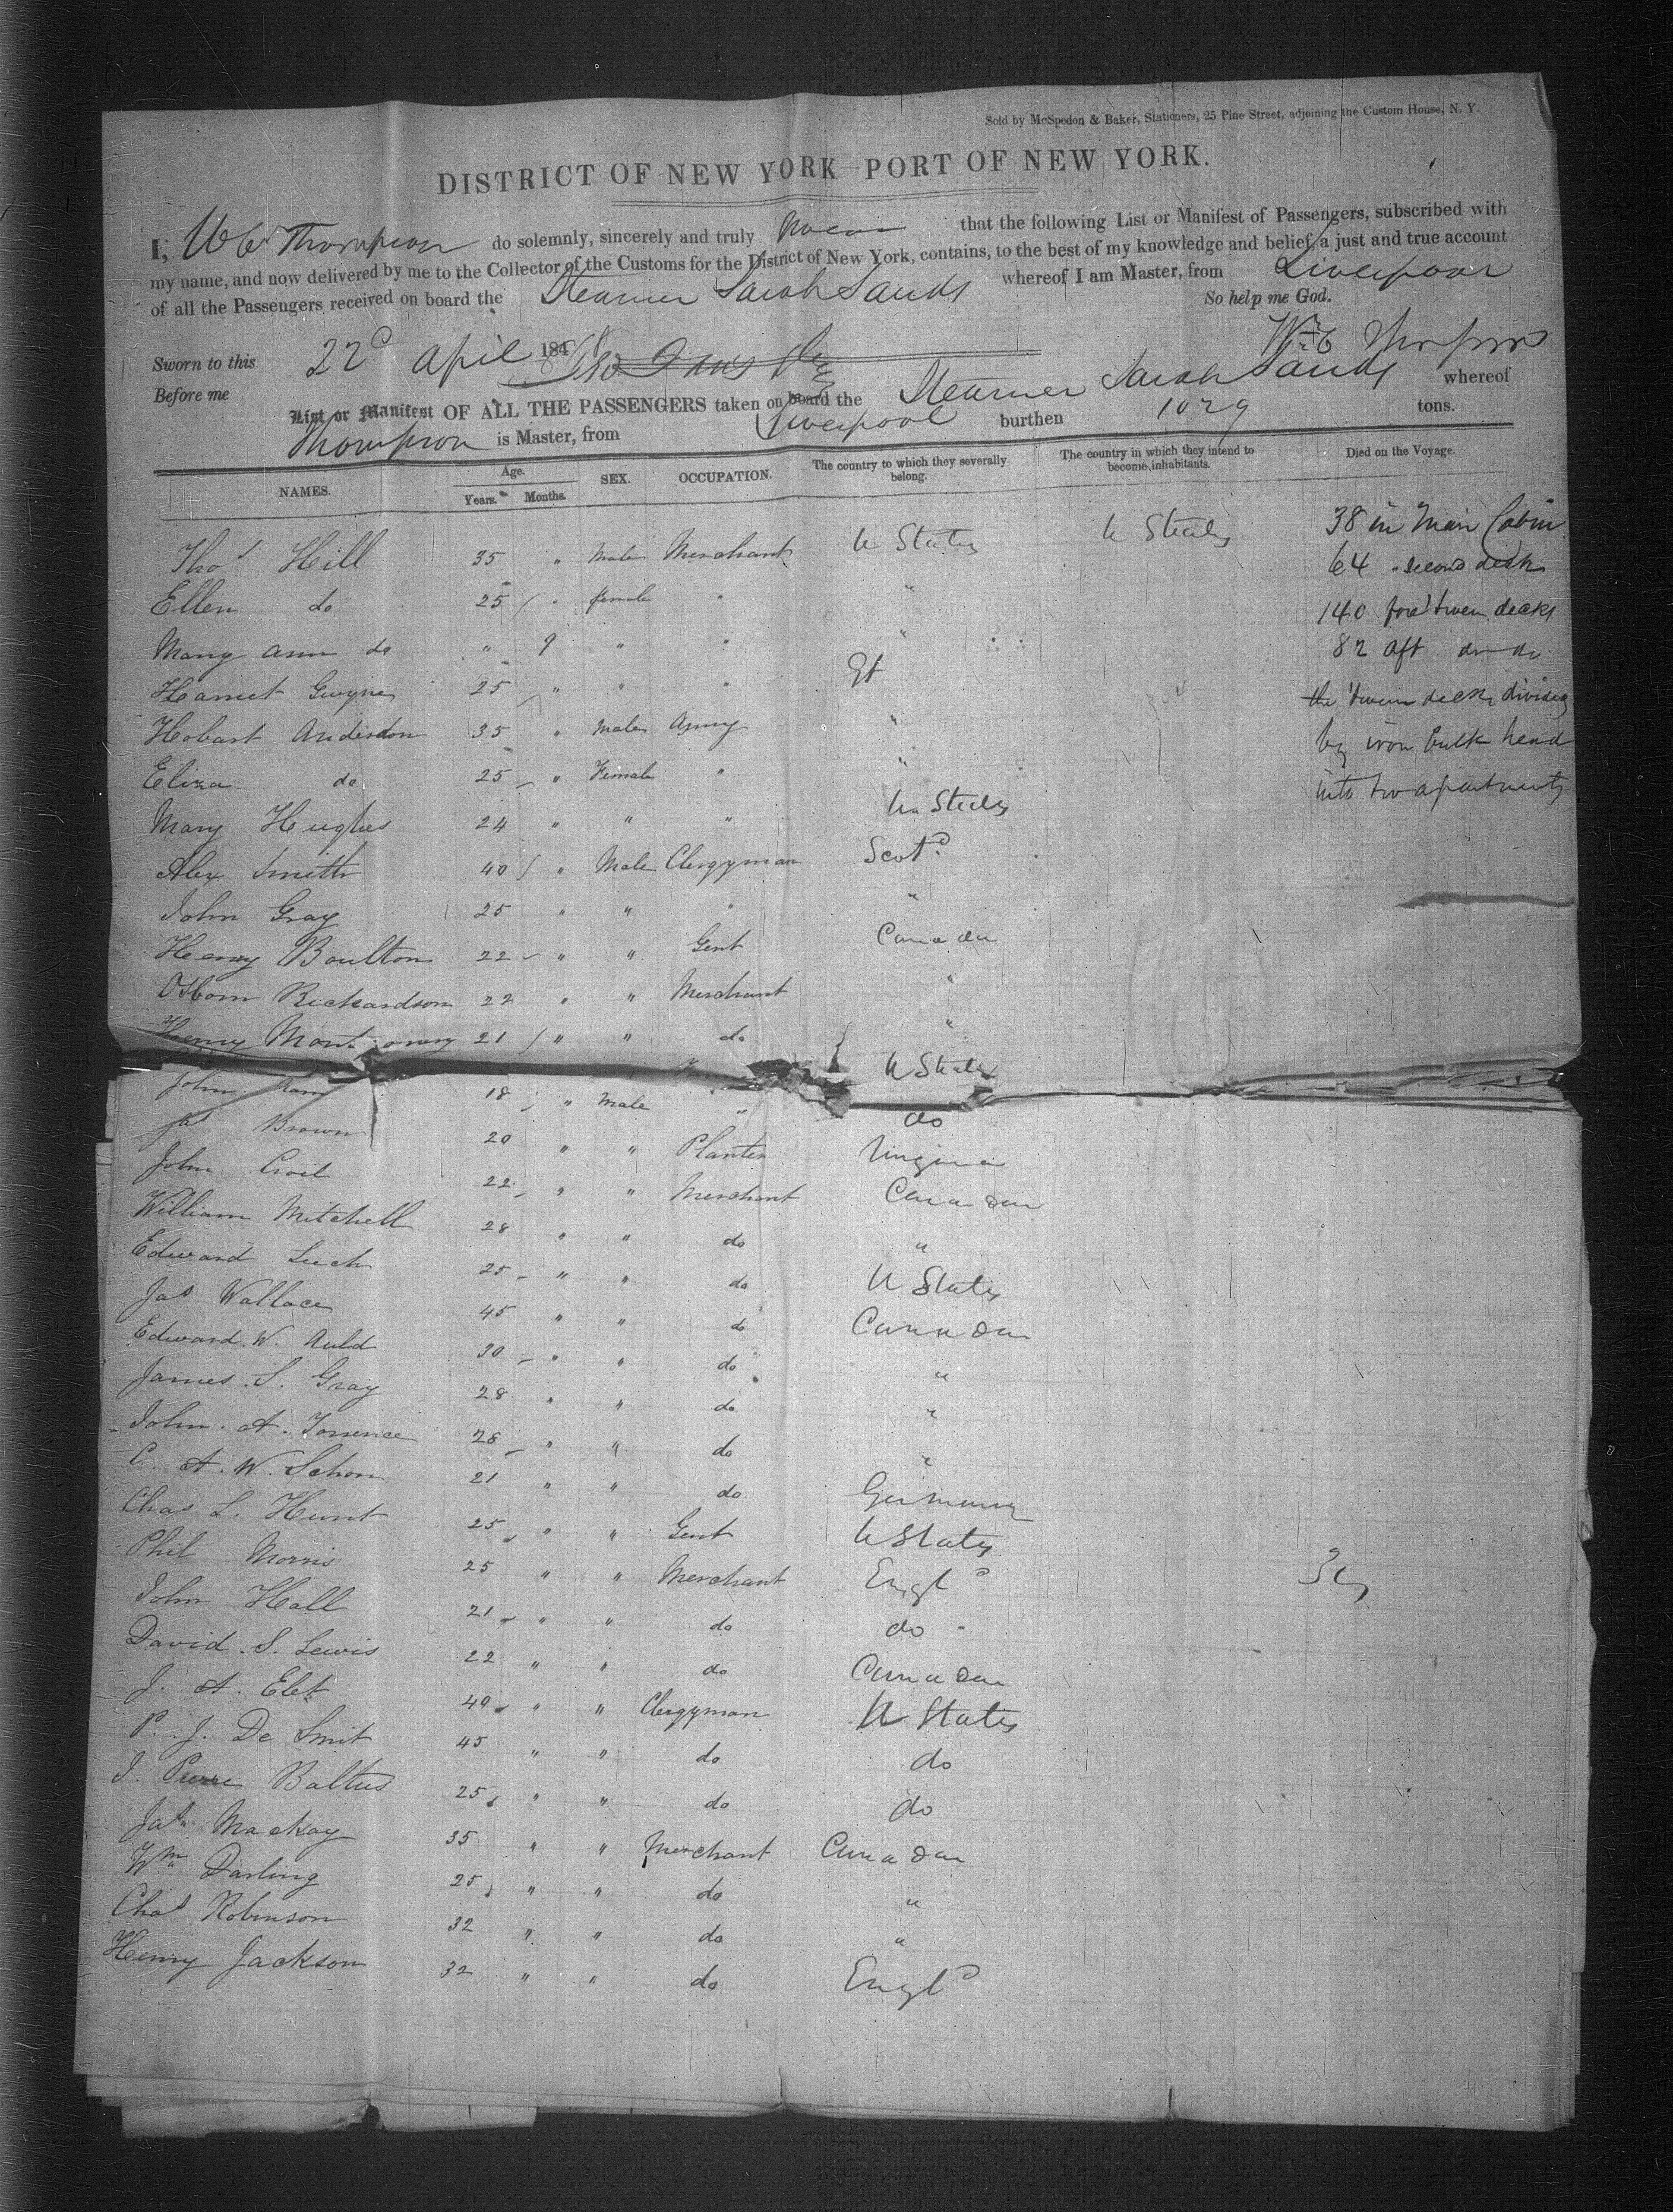 Sold by McSpedon & Baker, Stationers, 25 Pine Street, adjoining the Custom House, N. Y.
DISTRICT OF NEW YORK—PORT OF NEW YORK.
I, Wm Thompson do solemnly, sincerely and truly swear that the following List or Manifest of Passengers, subscribed with
my name, and now delivered by me to the Collector of the Customs for the District of New York, contains, to the best of my knowledge and belief, a just and true account
of all the Passengers received on board the Steamer Sarah Sands whereof I am Master, from Liverpool
So help me God.
Sworn to this 22d April 184
Thompson
Before me
List or Manifest OF ALL THE PASSENGERS taken on board the Steamer Sarah Sands whereof
Thompson is Master, from Liverpool burthen 1029 tons.
NAMES. Age. Years. Months. SEX. OCCUPATION. The country to which they severally belong. The country in which they intend to become inhabitants. Died on the Voyage.
Thos Hill 35 " Male Merchant U States U States 38 in Main Cabin
Ellen do 25 " female " " 64 " second deck
Mary Ann do " 9 " " " 140 fore 'tween decks
Harriet Gwynne 25 " " " Et 82 aft do do
Hobart Anderdon 35 " Male Army " the 'tween decks divided
Eliza do 25 " Female " " by iron bulk head
Mary Hughes 24 " " " U States into two apartments
Alex Smith 40 " Male Clergyman Scotd
John Gray 25 " " " "
Henry Boulton 22 " " Gent Canada
Osborn Richardson 22 " " Merchant "
Henry Montgomery 21 " " do "
U States
John 18 " Male " do
Jas Brown 20 " " Planter Virginia
John Croil 22 " " Merchant Canada
William Mitchell 28 " " do "
Edward Leech 25 " " do U States
Jas Wallace 45 " " do Canada
Edward W. Auld 30 " " do "
James S. Gray 28 " " do "
John A. Torrence 28 " " do "
C. A. W. Schon 21 " " do Germany
Chas L. Hunt 25 " " Gent U States
Phil Morris 25 " " Merchant Engld
John Hall 21 " " do do
David S. Lewis 22 " " do Canada
J. A. Elet 40 " " Clergyman U States
P. J. De Smit 45 " " do do
J. Pierre Baltus 25 " " do do
Jas Mackay 35 " " Merchant Canada
Wm Darling 25 " " do "
Chas Robinson 32 " " do "
Henry Jackson 32 " " do Engld